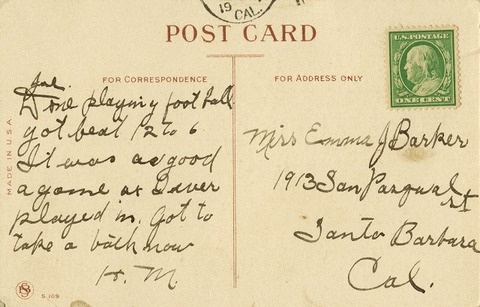 19
CAL.
POST CARD
FOR CORRESPONDENCE
FOR ADDRESS ONLY
U.S. POSTAGE
ONE CENT
MADE IN U.S.A.
Done playing foot ball
got beat 12 to 6
It was as good
a game as I ever
played in. Got to
take a bath now
H. M.
S. 109
Miss Emma J Barker
1913 San Pasqual St
Santa Barbara
Cal.